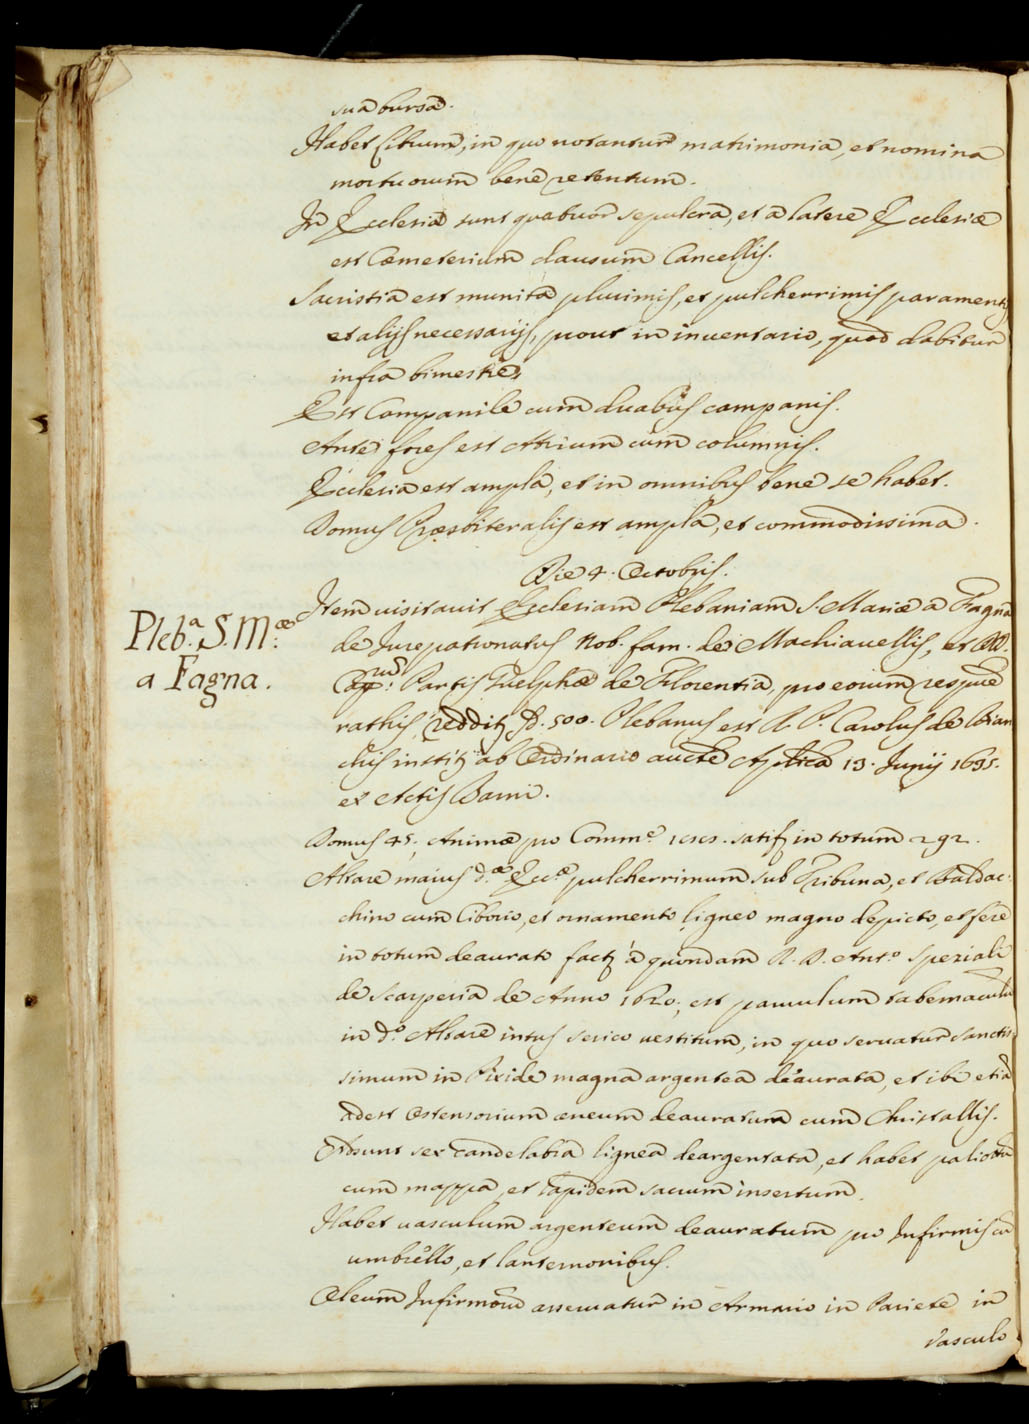 sua bursa.
Habet Librum, in quo notantur matrimonia, et nomina
mortuorum bene retentum.
In Ecclesia sunt quatuor sepulcra, et a latere Ecclesiæ
est Cæmeterium clausum Cancellis.
Sacristia est munita plurimis, et pulcherrimis paramentis
et alijs necessarijs, prout in inventario, quod dabitur
infra bimestre.
Est Campanile cum duabus campanis.
Ante fores est Atrium cum columnis.
Ecclesia est ampla, et in omnibus bene se habet.
Domus Præsbiteralis est ampla, et commodissima.
Die 4. Octobris.
Pleb.ª S. M.æ
a Fagna.
Item visitavit Ecclesiam Plebaniam S. Mariæ a Fagna
de Jurepatronatus Nob. fam. de Machiavellis, et DD.
Partis Guelphæ de Florentia, pro eorum respve
rathis, reddit 500. Plebanus est R. P. Carolus de Bian
chis instit ab Ordinario aucte Aplica 13. Junij 1695.
ex Actis Barni.
Domus 45. Animæ pro Comm.e satisf in totum 292.
Altare maius d.æ Ecc.æ pulcherrimum sub Tribuna, et Baldac:
chino cum Ciborio, et ornamento ligneo magno depicto, et fere
in totum deaurato fact à quondam R. D. Ant.o Speziali
de Scarperia de Anno 1620. est parvulum tabernaculu
in d.o Altare intus serico vestitum, in quo servatur sanctis:
simum in Pixide magna argentea deaurata, et ibi etia
adest Ostensorium æneum deauratum cum Christallis.
Adsunt sex candelabra lignea deargentata, et habet paliottu
cum mappa, et lapidem sacrum insertum.
Habet vasculum argenteum deauratum pro Infirmis cu
umbrello, et lanternonibus.
Oleum Infirmoru asservatur in Armario in Pariete in
vasculo